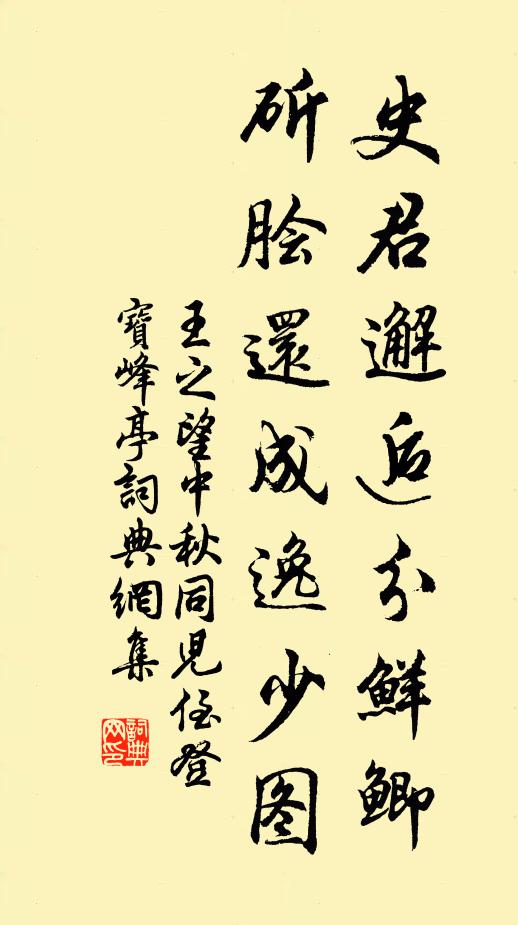 史君邂逅分鮮鯽
斫脍還成逸少图
王之望中秋同児侄登
寶峰亭詞典網集
詞典網印